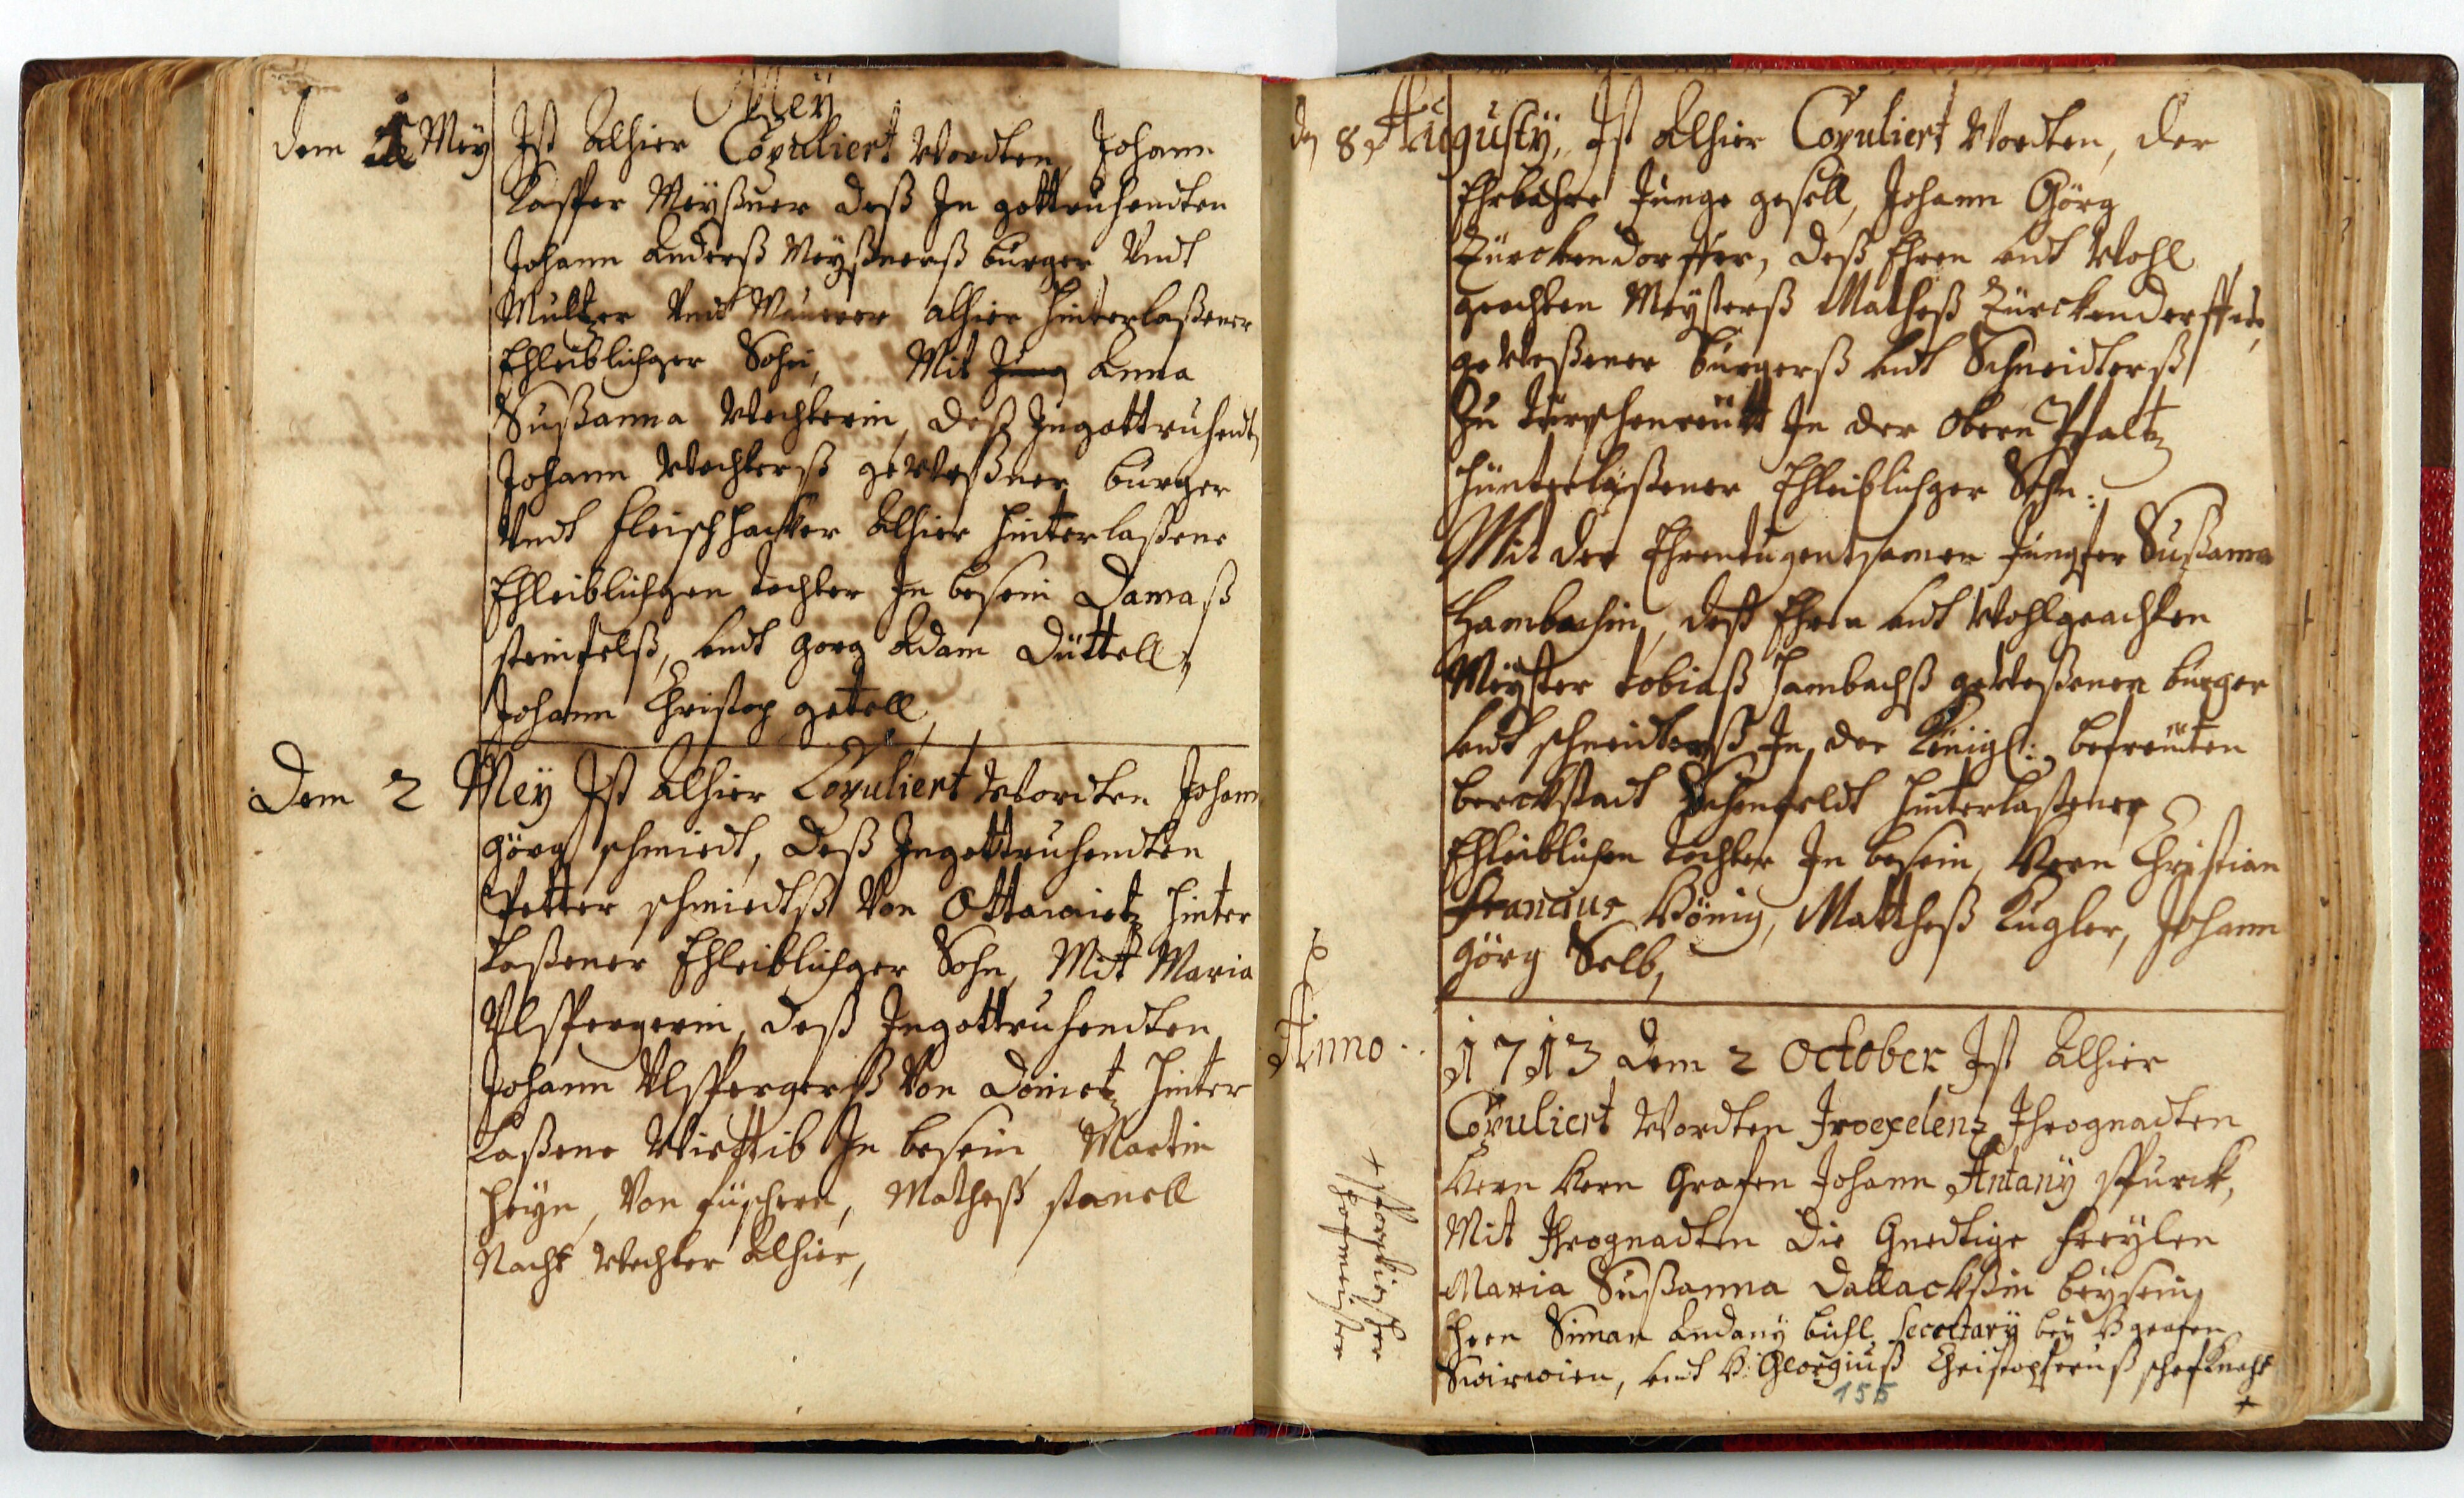 Mey
dem 1 Mey Ist alhier Copuliert Wordten, Johann
Kasper Meyßner deß In gottruhendten
Johann Anderß Meyßnerß burger Undt
Multzer Und Maurer alhier hinterlaßener
Ehleiblichger Sohn, Mit Jung Anna
Sußanna Wechterin, deß Ingottruhendt
Johann Wechterß geweßner burger
Undt fleischhacker alhier hinterlaßene
Ehleiblichgen tochter In besein Damaß
steinfelß, undt görg Adam Düttell,
Johann Christop getell,
Dem 2 Mey Ist alhier Copuliert Wordten Johann
Görg schmiedt, deß Ingottruhendten
Petter schmiedtß Von Ottawietz hinter
laßener Ehleiblichger Sohn, Mit Maria
Ulspergerin, deß Ingottruhendten
Johann Ulspergerß Von Doinetz hinter
laßene Wiettib In besein Martin
heyn, Von füschern, Matheß stanell
Nacht Wechter alhier,
den 8 Augusty, Ist alhier Copuliert Wordten, der
Ehrbahre Junge gesell, Johann Görg
Zürckendorffer, deß Ehren undt Wohl
geachten Meysterß Matheß Zürckendorffers,
geweßener burgerß undt Schneidterß
Zu Türschenreütt In der Obern Pfaltz
hünterlaßener Ehleiblichger Sohn:
Mit der Ehrentugentsamen Jungfer Sußanna
Hambachin, deß Ehren undt Wohlgeachten
Meyster tobiaß Hambachß geweßenen burger
undt schneidterß In der Königl: befreüten
berckstadt hinterlaßener
Ehleiblichen tochter In besein, Hern Christian
Francius König, Mattheß Kugler, Johann
görg Selb,
Anno 1713 dem 2 October Ist alhier
Copuliert Wordten Iroexelenz Ihrognadten
Hern Hern Grafen Johann Antany spurck,
Mit Ihrognadten Die Gnedtige freylen
Maria Sußanna Dallackßin beysein
Hern Siman Andany bühl. Secretary bey H grafen
Swirwien, undt H: Georgiuß Christopferuß schafknecht
+
+ hofmeister
155